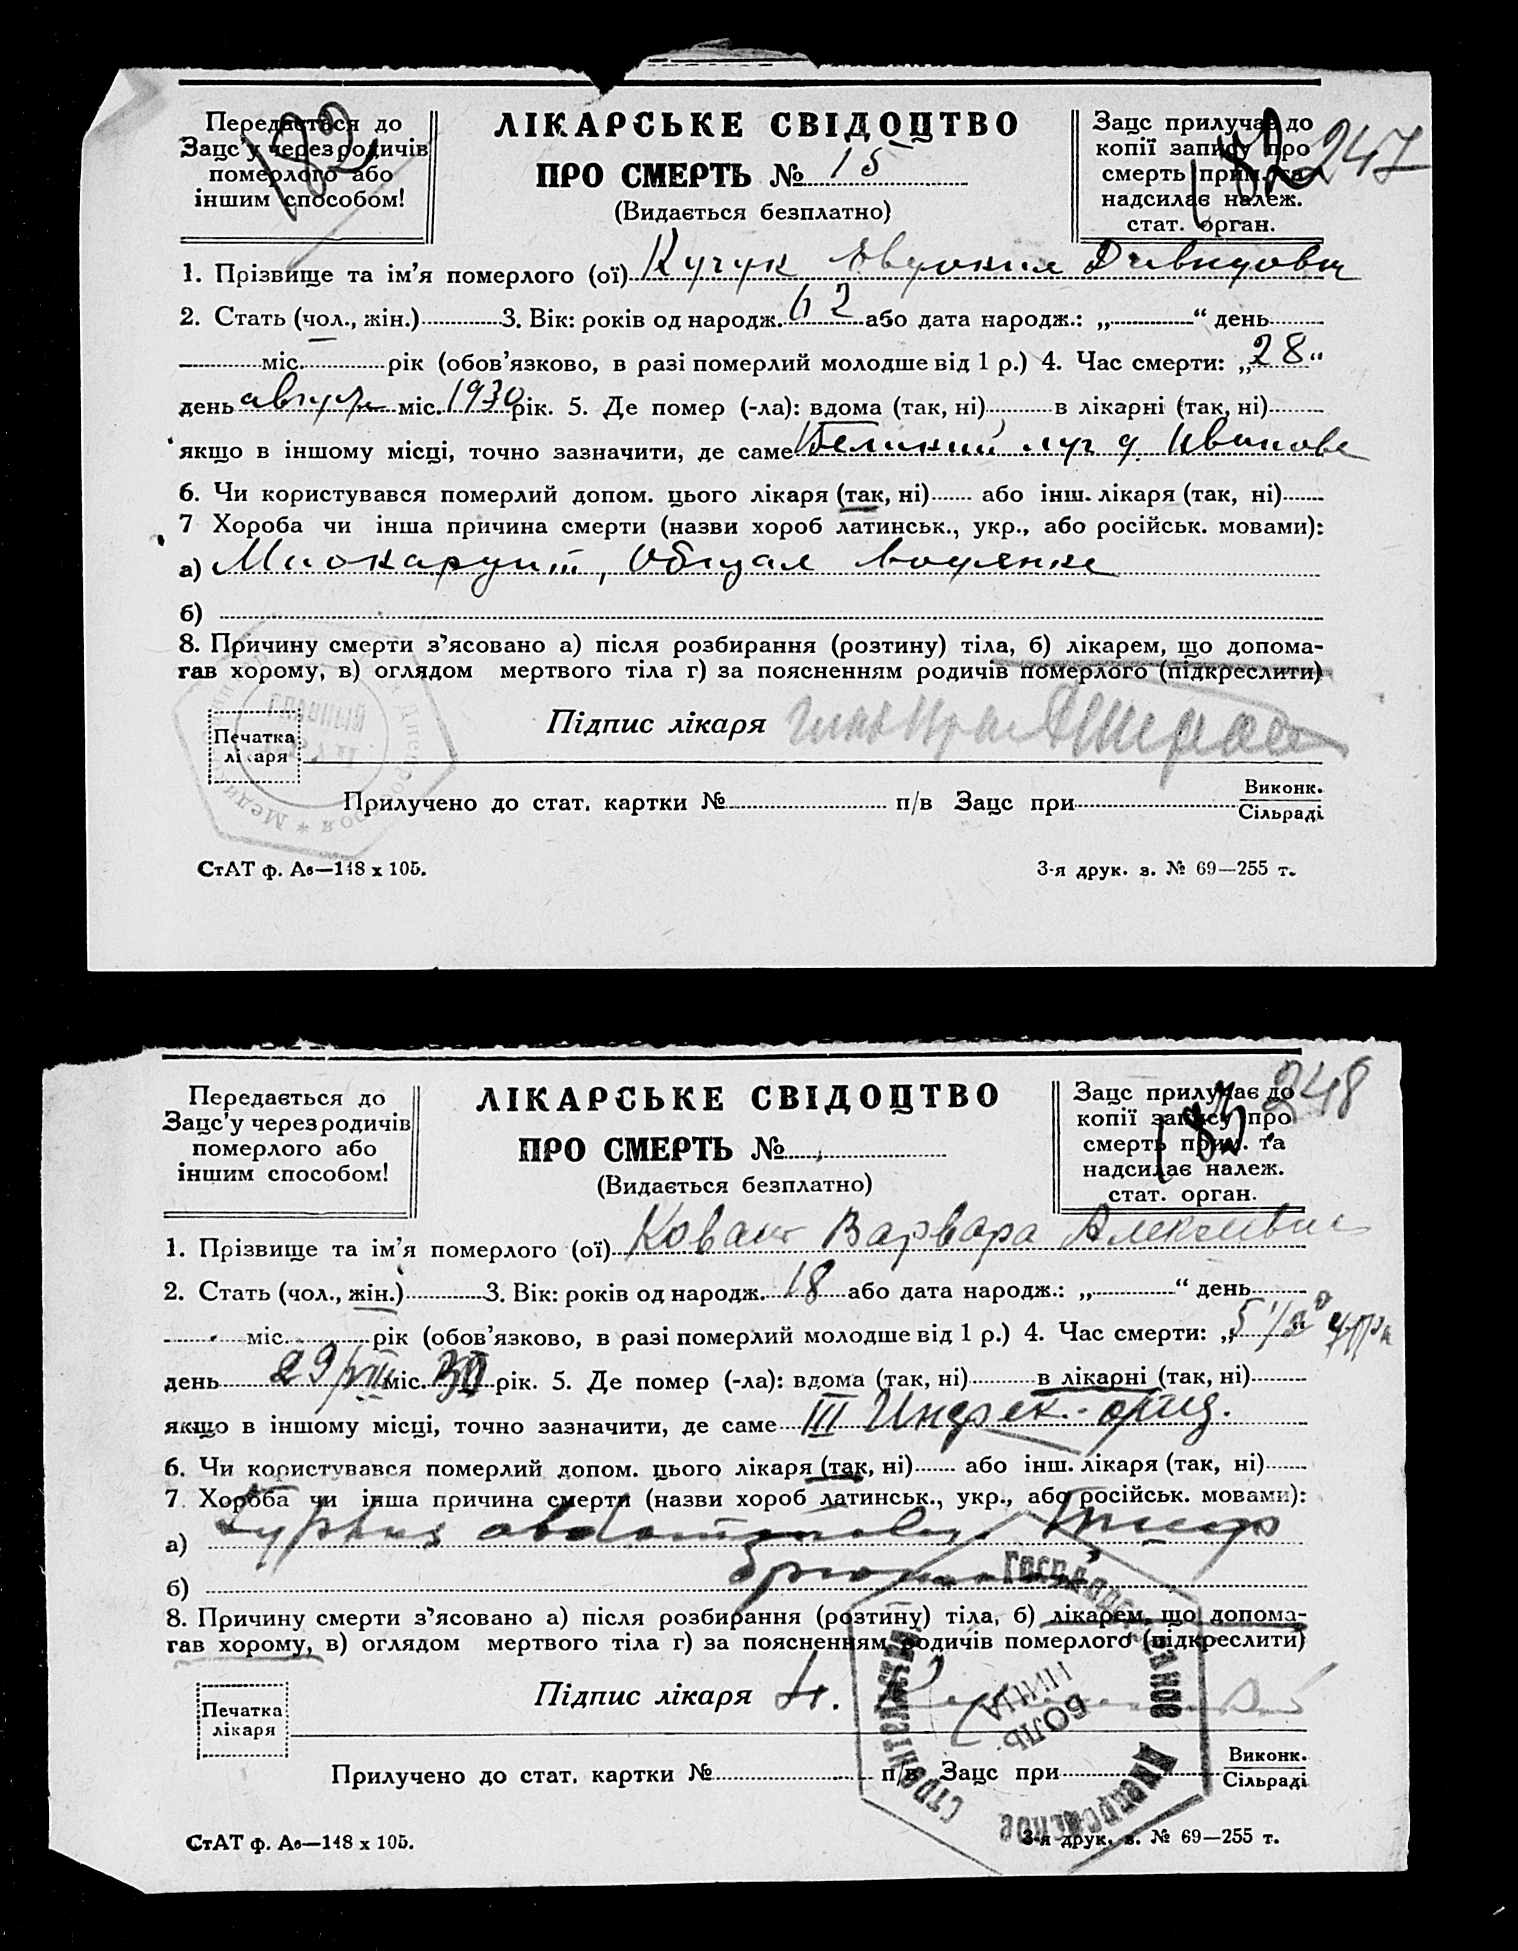 Передається до
Зацс'у через родичів
померлого або
іншим способом!
182
ЛІКАРСЬКЕ СВІДОЦТВО
ПРО СМЕРТЬ № 15
(Видається безплатно)
Зацс прилучає до
копії запису про
смерть прим. та
надсилає належ.
стат. орган.
182 247
1. Прізвище та ім'я померлого (ої) Кучук Евдокия Давидовна
2. Стать (чол., жін.) 3. Вік: років од народж. 62 або дата народж.: „ “ день
міс. рік (обов'язково, в разі померлий молодше від 1 р.) 4. Час смерти: „28“
день августа міс. 1930 рік. 5. Де помер (-ла): вдома (так, ні) в лікарні (так, ні)
якщо в іншому місці, точно зазначити, де саме Великий луг д. Иванова
6. Чи користувався померлий допом. цього лікаря (так, ні) або інш. лікаря (так, ні)
7 Хороба чи інша причина смерти (назви хороб латинськ., укр., або російськ. мовами):
а) Миокардит, Общая водянка
б)
8. Причину смерти з'ясовано а) після розбирання (розтину) тіла, б) лікарем, що допома-
гав хорому, в) оглядом мертвого тіла г) за поясненням родичів померлого (підкреслити)
Підпис лікаря
Печатка
лікаря
Прилучено до стат. картки № п/в Зацс при Виконк.
Сільраді
СтАТ ф. А6—148 х 105.
3-я друк. з. № 69—255 т.
Передається до
Зацс'у через родичів
померлого або
іншим способом!
ЛІКАРСЬКЕ СВІДОЦТВО
ПРО СМЕРТЬ №
(Видається безплатно)
Зацс прилучає до
копії запису про
смерть прим. та
надсилає належ.
стат. орган.
183 248
1. Прізвище та ім'я померлого (ої) Варвара Алексеевна
2. Стать (чол., жін.) 3. Вік: років од народж. 18 або дата народж.: „ “ день
міс. рік (обов'язково, в разі померлий молодше від 1 р.) 4. Час смерти: „5 1/2 утра
день 29/VIII міс. 30 рік. 5. Де помер (-ла): вдома (так, ні) в лікарні (так, ні)
якщо в іншому місці, точно зазначити, де саме III Инфек. отд.
6. Чи користувався померлий допом. цього лікаря (так, ні) або інш. лікаря (так, ні)
7. Хороба чи інша причина смерти (назви хороб латинськ., укр., або російськ. мовами):
а) Typhus abdominalis Тиф
б) брюшной
8. Причину смерти з'ясовано а) після розбирання (розтину) тіла, б) лікарем, що допома-
гав хорому, в) оглядом мертвого тіла г) за поясненням родичів померлого (підкреслити)
Підпис лікаря
Печатка
лікаря
БОЛЬ-
НИЦА
Прилучено до стат. картки № п/в Зацс при Виконк.
Сільраді
СтАТ ф. А6—148 х 105.
3-я друк. з. № 69—255 т.